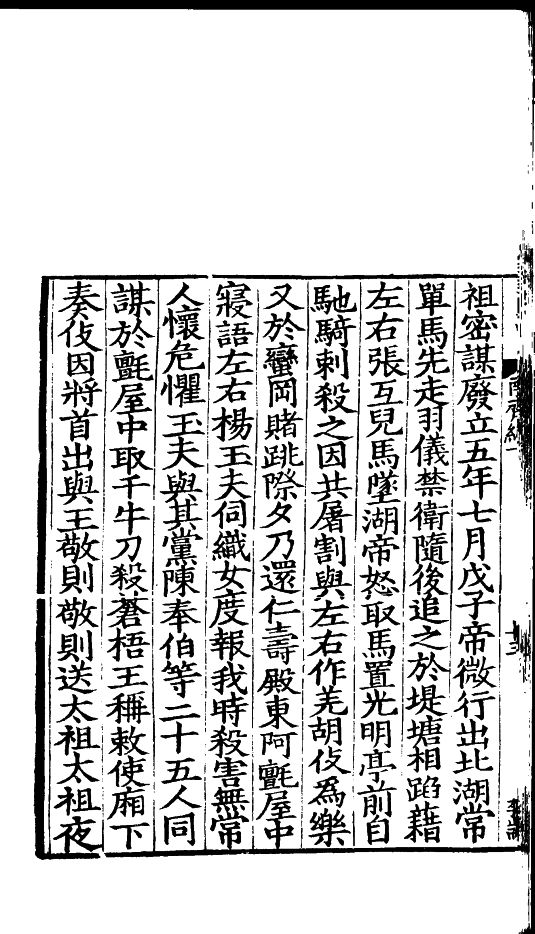 祖密謀廢立五年七月戊子帝微行出北湖常
單馬先走羽儀禁衛隨後追之於堤塘相蹈藉
左右張互兒馬墜湖帝怒取馬置光明亭前自
馳騎刺殺之因共屠割與左右作羌胡伎爲樂
又於蠻岡賭跳際夕乃還仁壽殿東阿氊屋中
寢語左右楊玉夫伺織女度報我時殺害無常
人懷危懼玉夫與其黨陳奉伯等二十五人同
謀於氊屋中取千牛刀殺蒼梧王稱敕使廂下
奏伎因將首出與王敬則敬則送太祖太祖夜